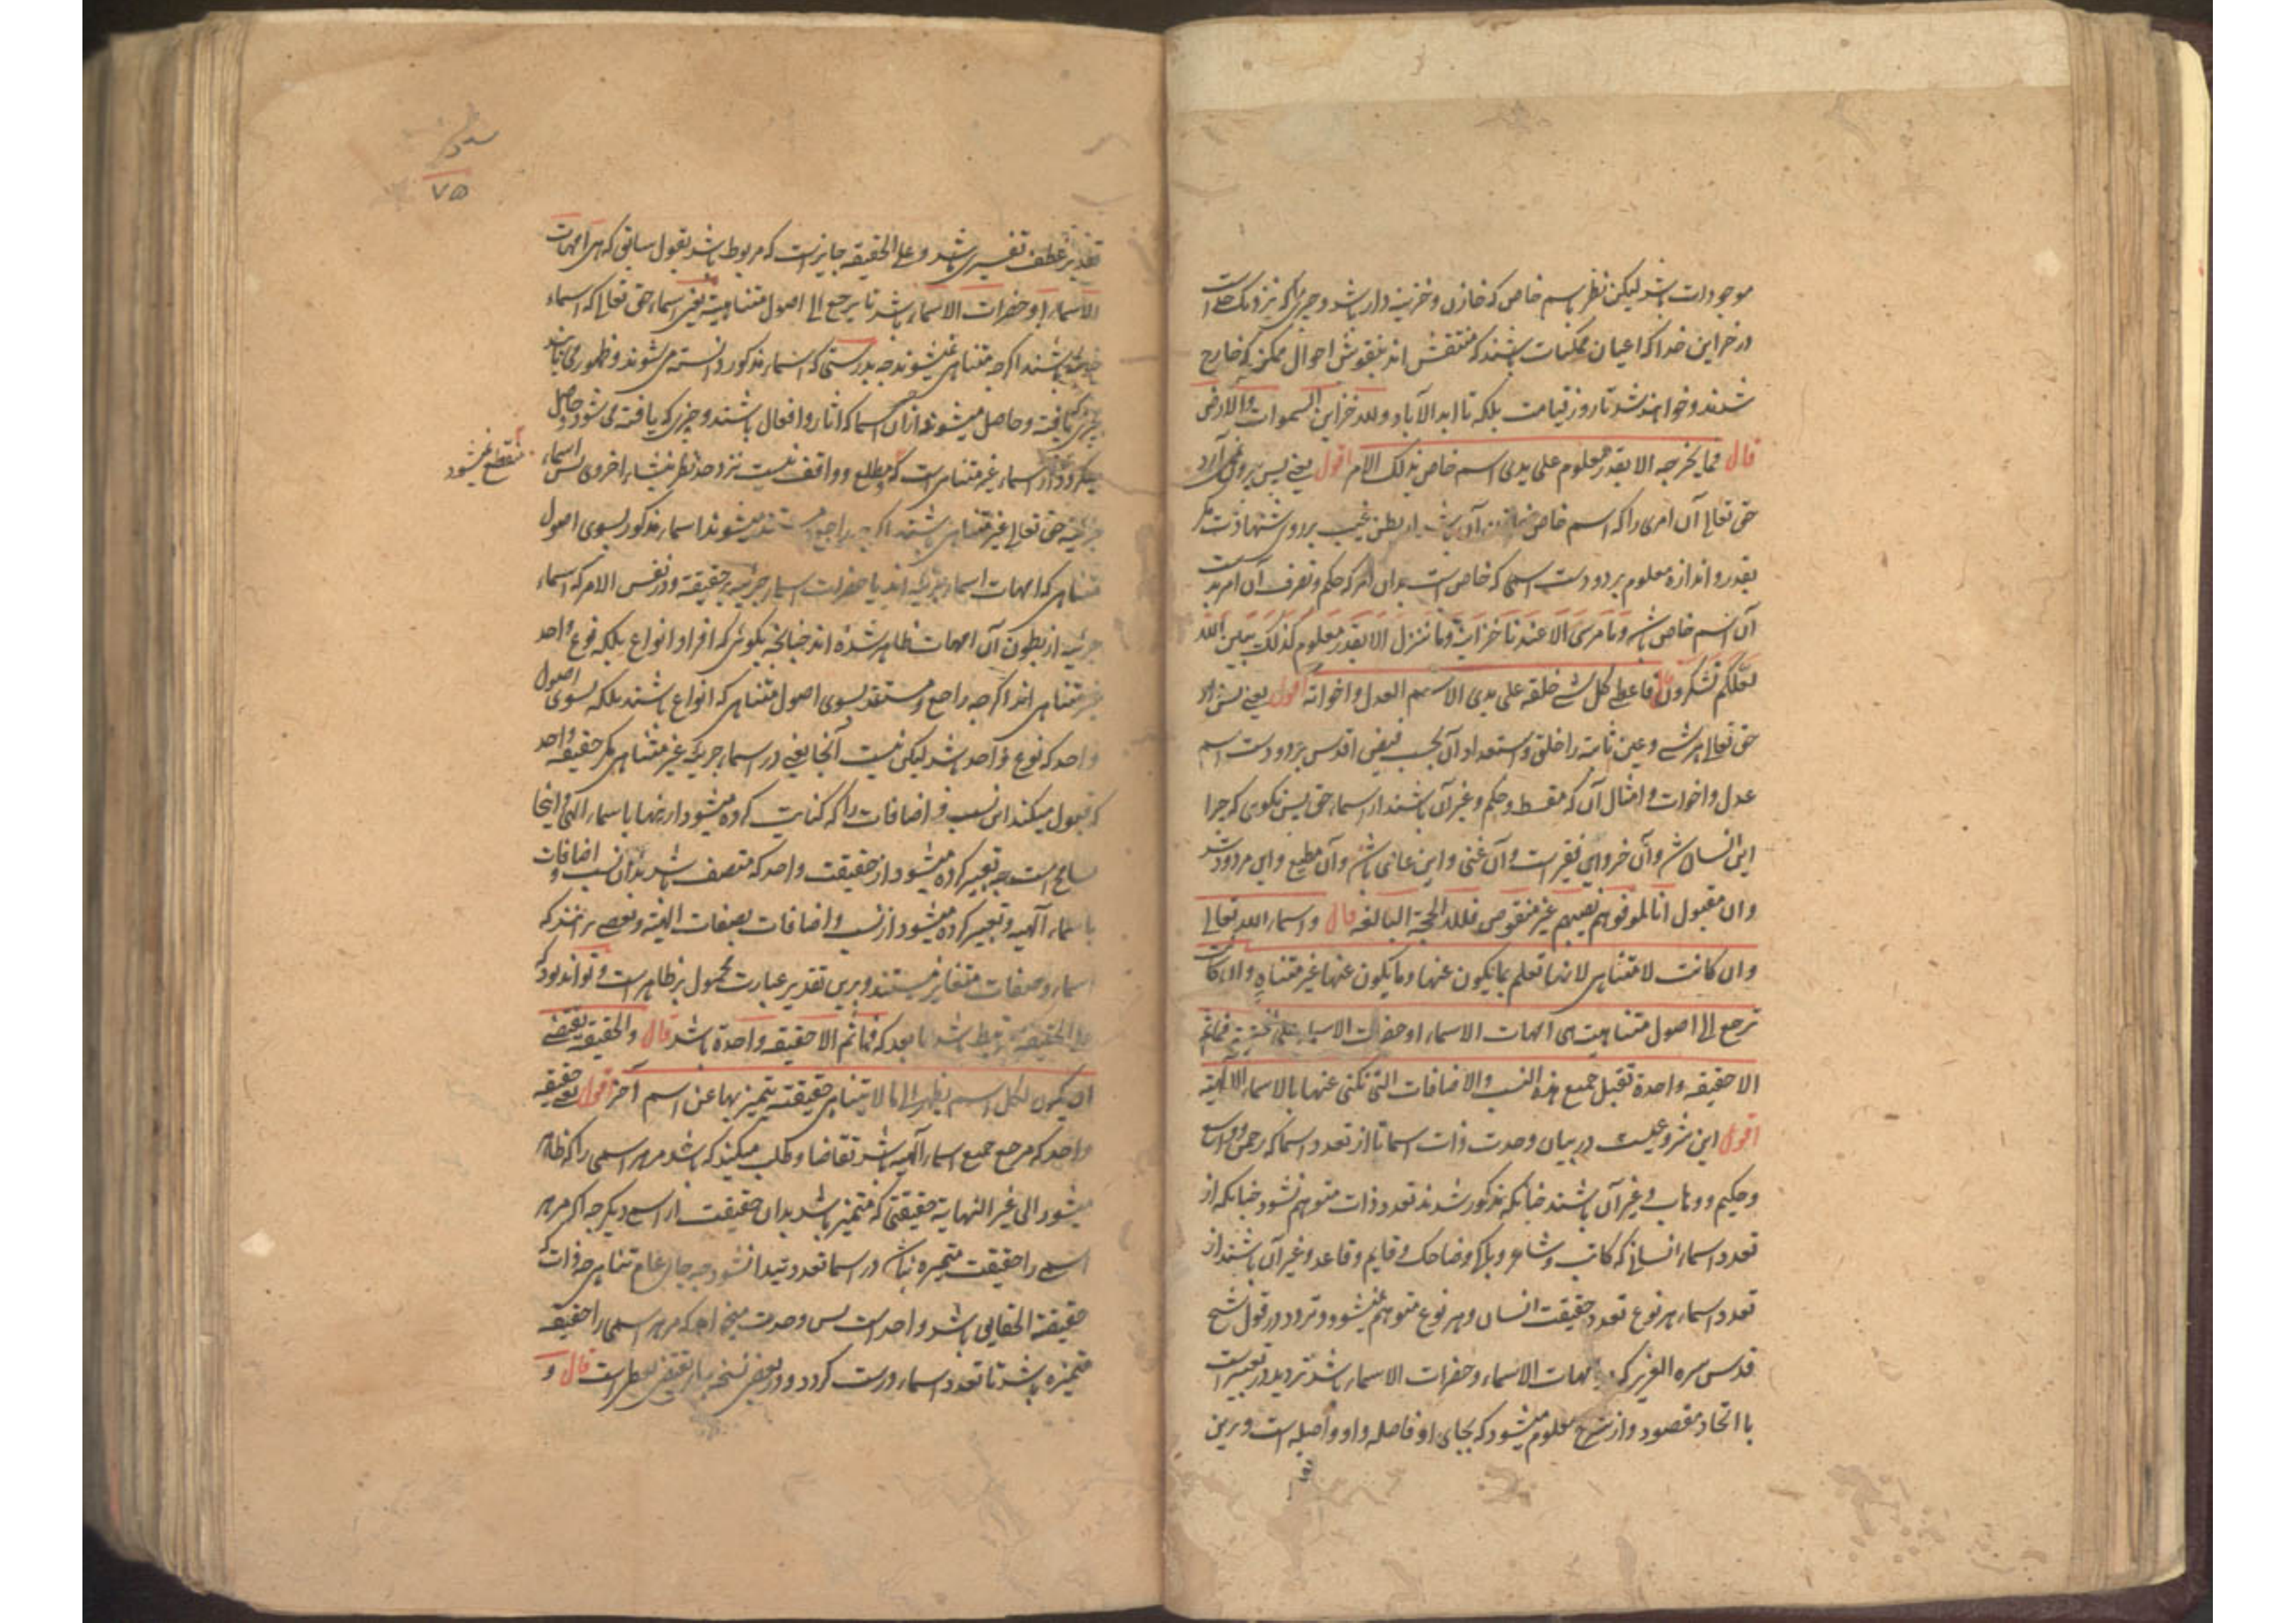 موجودات باشد لیکن نظر باسم خاص که خازن و خزینه دار باشد و چیزها که نزدیک خداست
در خزاین خدا که اعیان ممکنات باشند که منتقش اند بنقوش احوال ممکن که خارج
شدند و خواهند شد تا روز قیامت بلکه تا ابد الآباد ولله خزاین السموات والارض
قال فما یخرجه الا بقدر معلوم علی یدی اسم خاص بذلک الامر اقول یعنی پس بیرون نمی آرد
حق تعالی آن امری را که اسم خاص آن باشد از بطن غیب بر روی شهادت مگر
بقدر و اندازه معلوم بر دو دست اسمی که خاص است بدان امر که حکم و تصرف آن امر بدست
آن اسم خاص باشد وما من شیء الا عندنا خزائنه وما ننزله الا بقدر معلوم کذلک یبین الله
لعلکم تشکرون قال فاعطی کل شیء خلقه علی یدی الاسم العدل واخواته اقول یعنی پس داد
حق تعالی هر شیء و عین ثابته را خلق و استعداد آن بحسب فیض اقدس بر دو دست اسم
عدل و اخوات و امثال آن که مقسط و حکم و غیر آن باشند از اسماء حق پس نگوی که چرا
این انسان شد و آن خر و این فقیر است و آن غنی و این عاصی شد و آن مطیع و این مردود شد
وان مقبول انا لموفوهم نصیبهم غیر منقوص فلله الحجة البالغه قال و اسماء الله تعالی
وان کانت لا متناهی لانها تعلم بما یکون عنها وما یکون عنها غیر متناه وان کانت
ترجع الی اصول متناهیت هی امهات الاسماء او حضرات الاسماء وعلی الحقیقة فما ثم
الا حقیقه واحدة تقبل جمیع هذه النسب والاضافات التی تکنی عنها بالاسماء الالهیة
اقول این شروعیست در بیان وحدت ذات اسما تا از تعدد اسما که رحمن و واسع
و حکیم و وهاب و غیر آن باشند چنانکه مذکور شدند تعدد ذات متوهم نشود چنانکه از
تعدد اسماء انسان که کاتب و شاعر و باکی و ضاحک و قایم و قاعد و غیر آن باشند از
تعدد اسماء هر نوع تعدد حقیقت انسان و هر نوع متوهم نمیشود و تردد در قول شیخ
قدس سره العزیز که امهات الاسماء و حضرات الاسماء باشد تردید در تعبیر است
با اتحاد مقصود و از شرح معلوم میشود که بجای او فاصله واو واصله است و برین
۷۵
تقدیر عطف تفسیری باشد و علی الحقیقه جایز است که مربوط باشد بقول سابق که هی امهات
الاسماء او حضرات الاسماء باشد تا یرجع الی اصول متناهیة یعنی اسماء حق تعالی که اسماء
باشند اگرچه متناهی نمیشوند چه بدرستی که اسماء مذکور دانسته می شوند و ظهور می یابند
یافته و حاصل میشوند ازان اسما که اثار و افعال باشند و چیزی که یافته می شود و حاصل
میکردد از اسماء غیر متناهی است که مطلع و واقف نیست نزد حد نظر بنشاء اخروی پس اسماء
منقطع نمیشود
جزئیه حق تعالی غیر متناهی باشند اگرچه راجع و مستند میشوند اسماء مذکور بسوی اصول
متناهی که امهات اسماء جزئیه اند یا حضرات اسماء جزئیه بر حقیقة و در نفس الامر که اسماء
جزئیه از بطون آن امهات ظاهر شده اند چنانچه بگوئی که افراد انواع بلکه نوع واحد
غیر متناهی اند اگرچه راجع و مستند بسوی اصول متناهی که انواع باشند بلکه بسوی اصول
واحد که نوع واحد باشد لیکن نیست آنجا یعنی در اسماء جزئیه غیر متناهی مگر حقیقه واحد
که قبول میکند این نسب و اضافات را که کنایت کرده میشود ازینها باسماء الهی و اینجا
تسامح است چه تعبیر کرده میشود از حقیقت واحد که متصف باشد بدان نسب و اضافات
باسماء آلهیه و تعبیر کرده میشود از نسب و اضافات بصفات الهیة و بعضی برانند که
اسماء و صفات متغایر نیستند و برین تقدیر عبارت محمول بر ظاهر است و تواند بود که
علی الحقیقه مرتبط باشد بما بعد که فما ثم الا حقیقه واحدة باشد قال و الحقیقه تقتضی
ان یکون لکل اسم یظهر الی ما لا یتناهی حقیقته یتمیز بها عن اسم آخر اقول یعنی حقیقه
واحد که مرجع جمیع اسماء آلهیه باشد تقاضا و طلب میکند که باشد مر هر اسمی را که ظاهر
میشود الی غیر النهایة حقیقتی که متمیز باشد بدان حقیقت از اسم دیگر چه اگر مر هر
اسمی را حقیقت متمیزه نباشد در اسما تعدد پیدا نشود چه جای عدم تناهی چه ذات که
حقیقة الحقایق باشد واحد است پس وحدت میخواهد که مر هر اسمی را حقیقه
متمیزه باشد تا تعدد اسماء درست کردد و در بعضی نسخه بیاء تقتضی بعطر است قال و